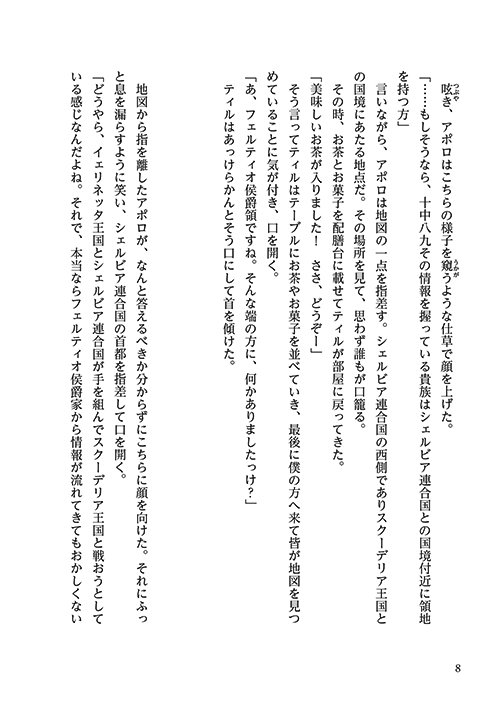 呟き、アポロはこちらの様子を窺うような仕草で顔を上げた。
「……もしそうなら、十中八九その情報を握っている貴族はシェルビア連合国との国境付近に領地
を持つ方」
言いながら、アポロは地図の一点を指差す。シェルビア連合国の西側でありスクーデリア王国と
の国境にあたる地点だ。その場所を見て、思わず誰もが口籠る。
その時、お茶とお菓子を配膳台に載せてティルが部屋に戻ってきた。
「美味しいお茶が入りました！　ささ、どうぞー」
そう言ってティルはテーブルにお茶やお菓子を並べていき、最後に僕の方へ来て皆が地図を見つ
めていることに気が付き、口を開く。
「あ、フェルティオ侯爵領ですね。そんな端の方に、何かありましたっけ？」
ティルはあっけらかんとそう口にして首を傾けた。
地図から指を離したアポロが、なんと答えるべきか分からずにこちらに顔を向けた。それにふっ
と息を漏らすように笑い、シェルビア連合国の首都を指差して口を開く。
「どうやら、イェリネッタ王国とシェルビア連合国が手を組んでスクーデリア王国と戦おうとして
いる感じなんだよね。それで、本当ならフェルティオ侯爵家から情報が流れてきてもおかしくない
8